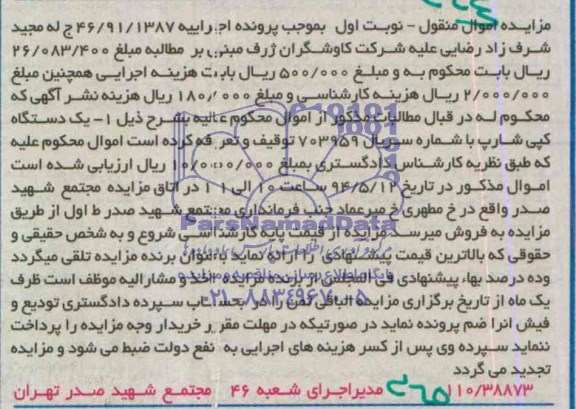 مزایده اموال منقول - نوبت اول بموجب پرونده اجراییه ۴۶/۹۱/۱۳۸۷ ج له مجید
شرف زاد رضایی علیه شرکت کاوشگران ژرف مبنی بر مطالبه مبلغ ۲۶/۰۸۳/۴۰۰
ریال بابت محکوم به و مبلغ ۵۰۰/۰۰۰ ریال بابت هزینه اجرایی همچنین مبلغ
۲/۰۰۰/۰۰۰ ریال هزینه کارشناسی و مبلغ ۱۸۰/۰۰۰ ریال هزینه نشر آگهی که
محکوم له در قبال مطالبات مذکور از اموال محکوم عالیه بشرح ذیل ۱- یک دستگاه
کپی شارپ با شماره سریال ۷۰۳۹۵۹ توقیف و تعرفه کرده است اموال محکوم علیه
که طبق نظریه کارشناس دادگستری بمبلغ ۱۰/۰۰۰/۰۰۰ ریال ارزیابی شده است
اموال مذکور در تاریخ ۹۴/۵/۱۲ ساعت ۱۰ الی ۱۱ در اتاق مزایده مجتمع شهید
صدر واقع در خ مطهری خ میرعماد جنب فرمانداری مجتمع شهید صدر ط اول از طریق
مزایده به فروش میرسد مزایده از قیمت پایه کارشناسی شروع و به شخص حقیقی و
حقوقی که بالاترین قیمت پیشنهادی را ارائه نماید بعنوان برنده مزایده تلقی میگردد
وده درصد بهاء پیشنهادی فی المجلس از برنده مزایده اخذ و مشارالیه موظف است ظرف
یک ماه از تاریخ برگزاری مزایده الباقی ثمن را در بحساب سپرده دادگستری تودیع و
فیش انرا ضم پرونده نماید در صورتیکه در مهلت مقرر خریدار وجه مزایده را پرداخت
ننماید سپرده وی پس از کسر هزینه های اجرایی به نفع دولت ضبط می شود و مزایده
تجدید می گردد
۱۱۰/۳۸۸۷۳ مدیراجرای شعبه ۴۶ مجتمع شهید صدر تهران
ParsNamadData
پایگاه اطلاع رسانی مناقصه و مزایده
۰۲۱-۸۸۳۴۹۶۷۰-۵